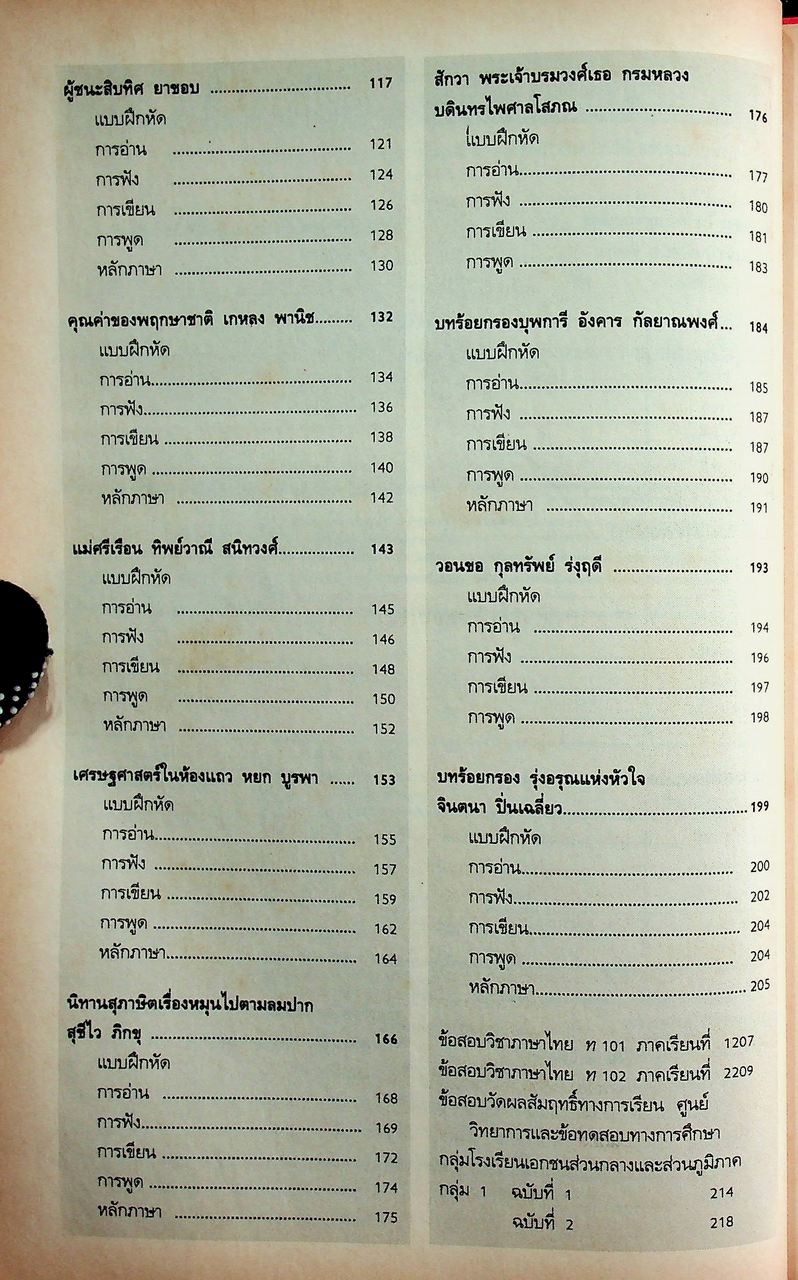 ผู้ชนะสิบทิศ ยาขอบ .................................. 117
แบบฝึกหัด
การอ่าน .................................. 121
การฟัง .................................. 124
การเขียน .................................. 126
การพูด .................................. 128
หลักภาษา .................................. 130
คุณค่าของพฤกษาชาติ เกหลง พานิช......... 132
แบบฝึกหัด
การอ่าน.................................. 134
การฟัง.................................. 136
การเขียน .................................. 138
การพูด .................................. 140
หลักภาษา .................................. 142
แม่ศรีเรือน ทิพย์วาณี สนิทวงศ์.................. 143
แบบฝึกหัด
การอ่าน .................................. 145
การฟัง .................................. 146
การเขียน .................................. 148
การพูด .................................. 150
หลักภาษา .................................. 152
เศรษฐศาสตร์ในห้องแถว หยก บูรพา ...... 153
แบบฝึกหัด
การอ่าน.................................. 155
การฟัง .................................. 157
การเขียน .................................. 159
การพูด .................................. 162
หลักภาษา.................................. 164
นิทานสุภาษิตเรื่องหมุนไปตามลมปาก
สุชีโว ภิกขุ .................................. 166
แบบฝึกหัด
การอ่าน .................................. 168
การฟัง.................................. 169
การเขียน .................................. 172
การพูด .................................. 174
หลักภาษา .................................. 175
สักวา พระเจ้าบรมวงศ์เธอ กรมหลวง
บดินทรไพศาลโสภณ .................................. 176
แบบฝึกหัด
การอ่าน.................................. 177
การฟัง .................................. 180
การเขียน .................................. 181
การพูด .................................. 183
บทร้อยกรองบุพการี อังคาร กัลยาณพงศ์... 184
แบบฝึกหัด
การอ่าน.................................. 185
การฟัง .................................. 187
การเขียน .................................. 187
การพูด .................................. 190
หลักภาษา .................................. 191
วอนขอ กุลทรัพย์ รุ่งฤดี ............................ 193
แบบฝึกหัด
การอ่าน .................................. 194
การฟัง .................................. 196
การเขียน .................................. 197
การพูด .................................. 198
บทร้อยกรอง รุ่งอรุณแห่งหัวใจ
จินตนา ปิ่นเฉลียว.................................. 199
แบบฝึกหัด
การอ่าน.................................. 200
การฟัง.................................. 202
การเขียน.................................. 204
การพูด .................................. 204
หลักภาษา.................................. 205
ข้อสอบวิชาภาษาไทย ท 101 ภาคเรียนที่ 1207
ข้อสอบวิชาภาษาไทย ท 102 ภาคเรียนที่ 2209
ข้อสอบวัดผลสัมฤทธิ์ทางการเรียน ศูนย์
วิทยาการและข้อทดสอบทางการศึกษา
กลุ่มโรงเรียนเอกชนส่วนกลางและส่วนภูมิภาค
กลุ่ม 1 ฉบับที่ 1 214
ฉบับที่ 2 218